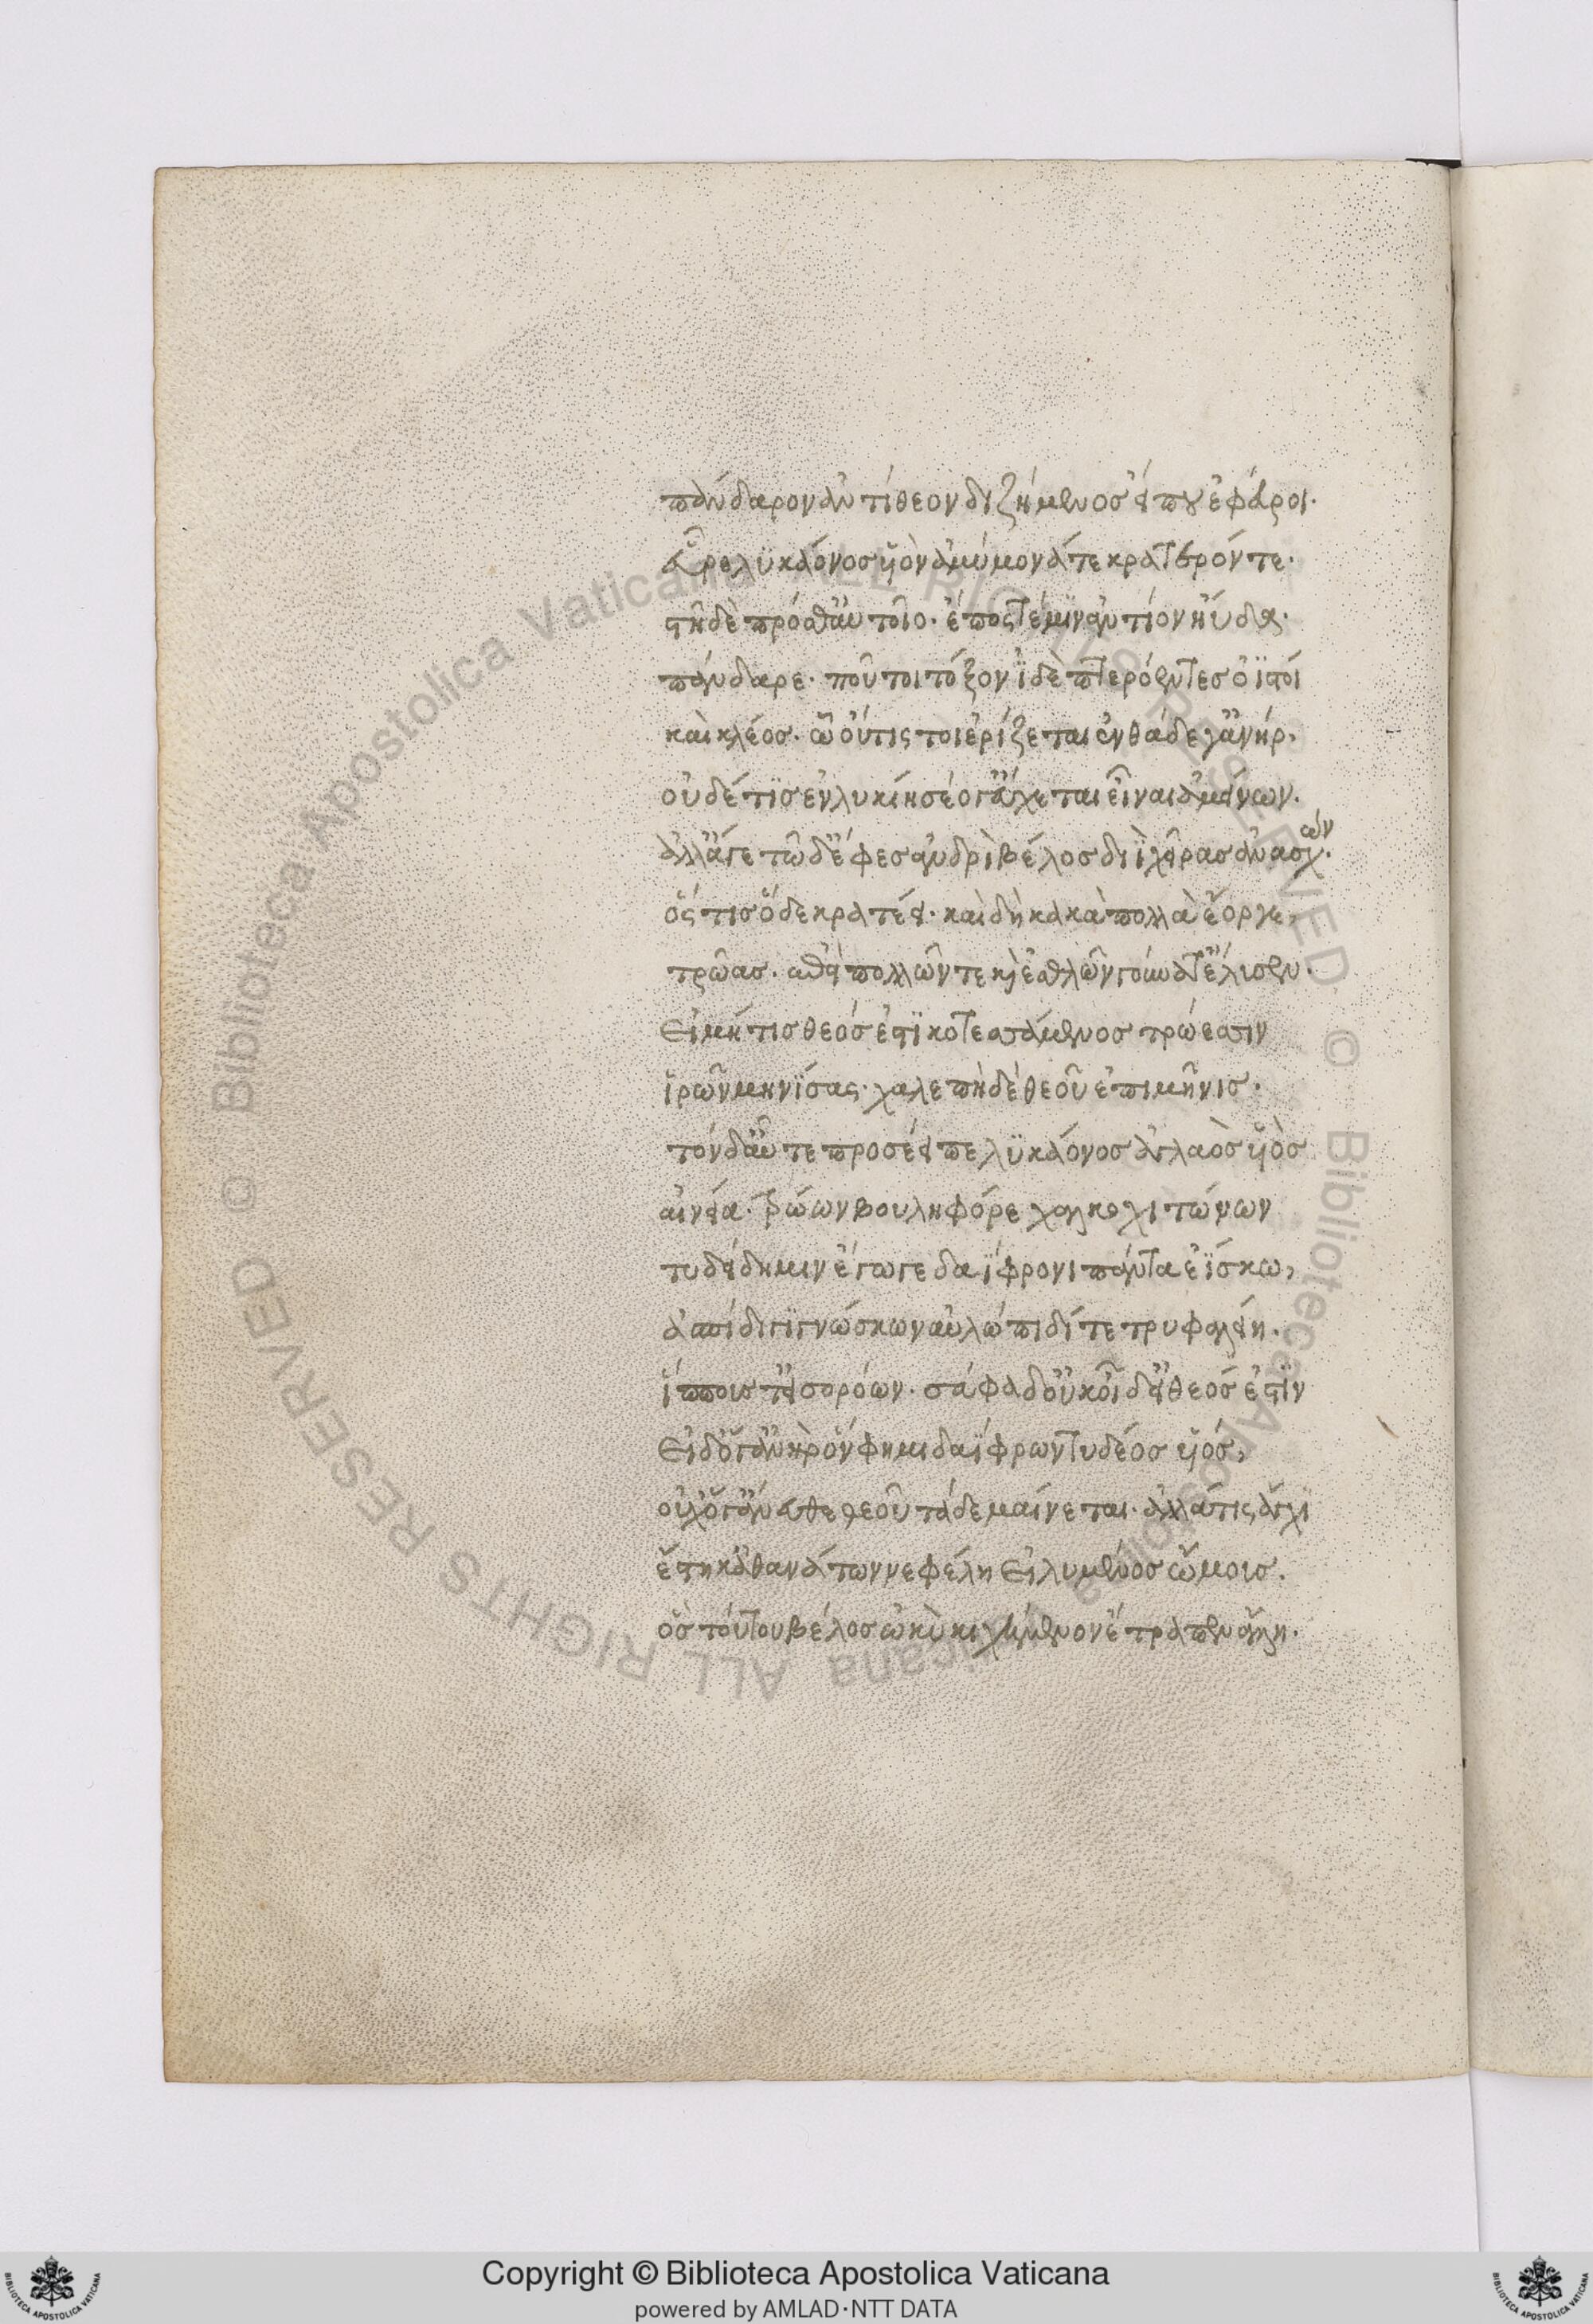 πάνδαρον ἀντίθεον διζήμενος εἴ που ἐφεύροι.
εὗρε λϋκάονος ϋἱὸν ἀμύμονά τε κρατερόν τε.
στῆ δὲ πρόσθ' αὐτοῖο. ἔπος τέ μϊν ἀντίον ηὔδα.
πάνδαρε. ποῦ τοι τόξον ἰδὲ πτερόεντες ὀϊστοί
καὶ κλέος. ὧ οὔτις τοι ἐρίζεται ἐνθάδε γ' ἀνήρ.
οὐδέ τϊς ἐν λυκίη σέο γ' εὔχεται εἶναι ἀμείνων.
ἀλλ' ἄγε τῶδ' ἔφες ἀνδρὶ βέλος διῒ χεῖρας ἀνασχών.
ὅς τις ὅδε κρατέει. καὶ δὴ κακὰ πολλὰ ἔοργε,
τρῶας. ἐπεὶ πολλῶν τε καὶ ἐσθλῶν γούνατ' ἔλυσεν.
εἰ μή τις θεός ἐστϊ κοτεσσάμενος τρώεσσιν
ἱρῶν μηνΐσας. χαλεπὴ δὲ θεοῦ ἐπι μῆνις.
τὸν δ' αὖτε προσέειπε λϋκάονος ἀγλαὸς ϋἱὸς
αἰνεία. τρώων βουληφόρε χαλκοχιτώνων
τυδείδη μιν ἔγωγε δαΐφρονι πάντα ἐΐσκω,
ἀσπίδι γϊγνώσκων αὐλώπιδί τε τρυφαλείη.
ἵππους τ' εἰσορόων. σάφα δ' οὐκ οἶδ' εἰ θεός ἐστϊν
εἰ δ' ὅγ' ἀνὴρ ὅν φημι δαΐφρων τυδέος ϋἱός,
οὐχ' ὅγ' ἄνευθε θεοῦ τάδε μαίνεται. ἀλλά τις ἄγχϊ
ἕστηκ' ἀθανάτων νεφέλη εἰλυμένος ὤμοις.
ὃς τούτου βέλος ὠκὺ κιχήμενον ἔτραπεν ἄλλη.
Copyright © Biblioteca Apostolica Vaticana
powered by AMLAD·NTT DATA